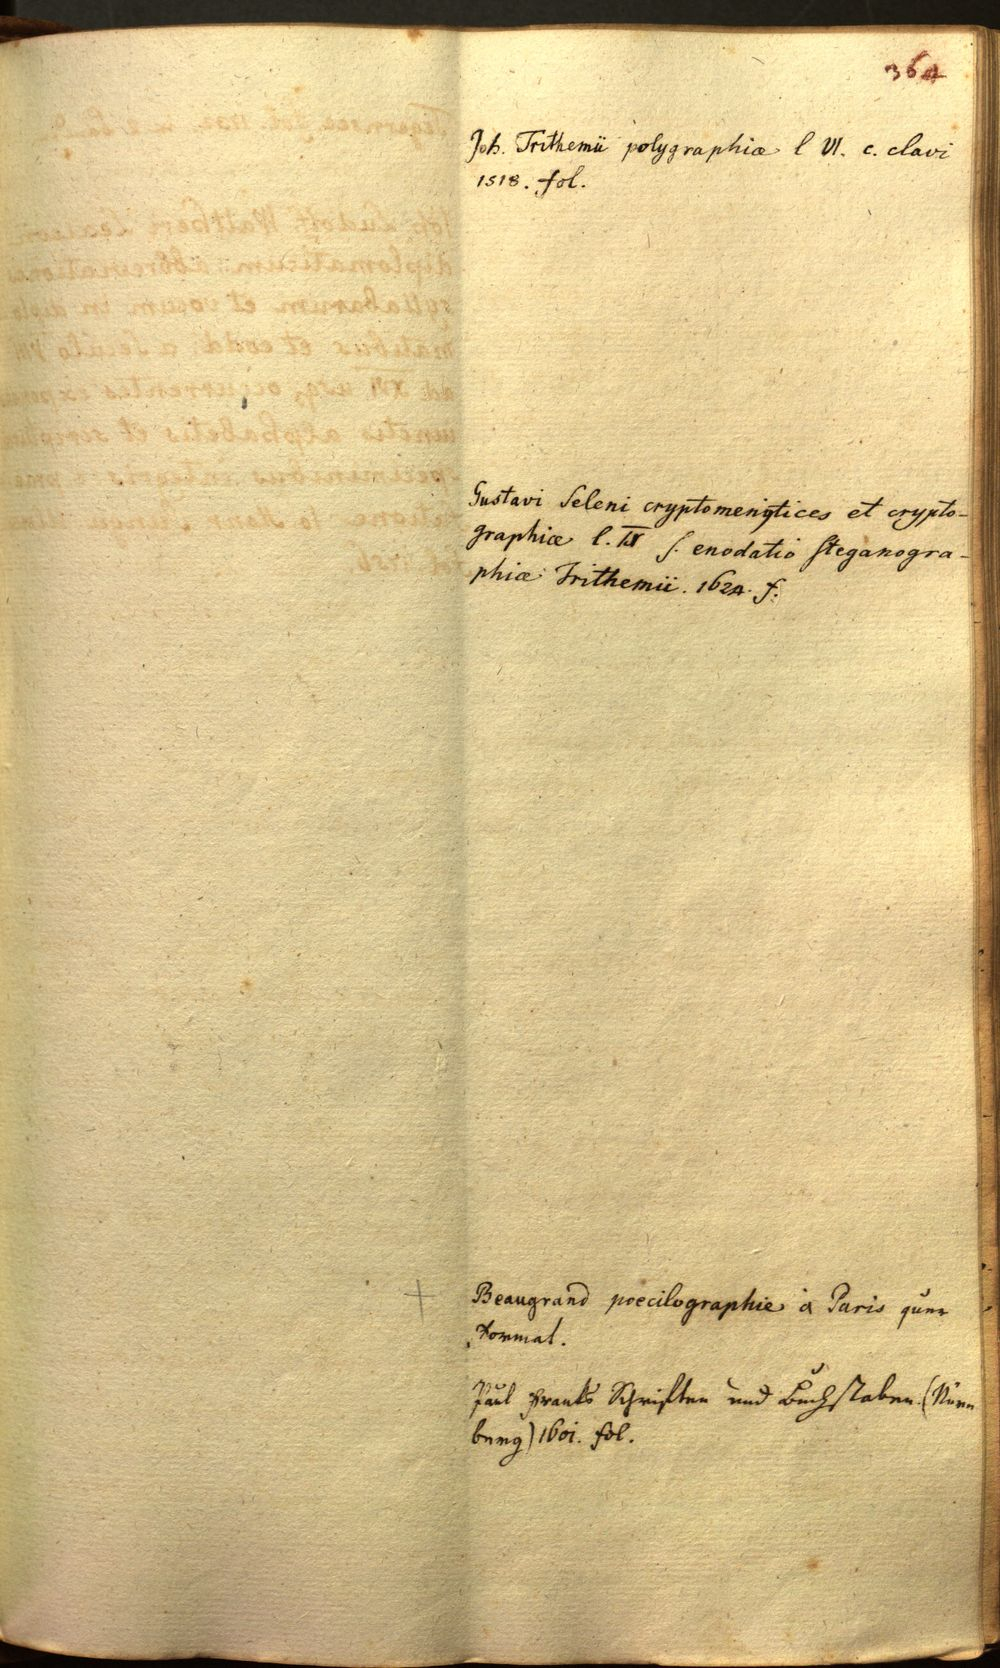 364
Joh. Trithemii polygraphiæ l VI. c. clavi
1518. fol.
Gustavi Seleni cryptomenytices et crypto-
graphiæ l. IX s. enodatio steganogra-
phiæ Trithemii. 1624. f.
Beaugrand poecilographie à Paris quer
Format.
Paul Franks Schriften und Buchstaben. (Nürn
berg) 1601. fol.